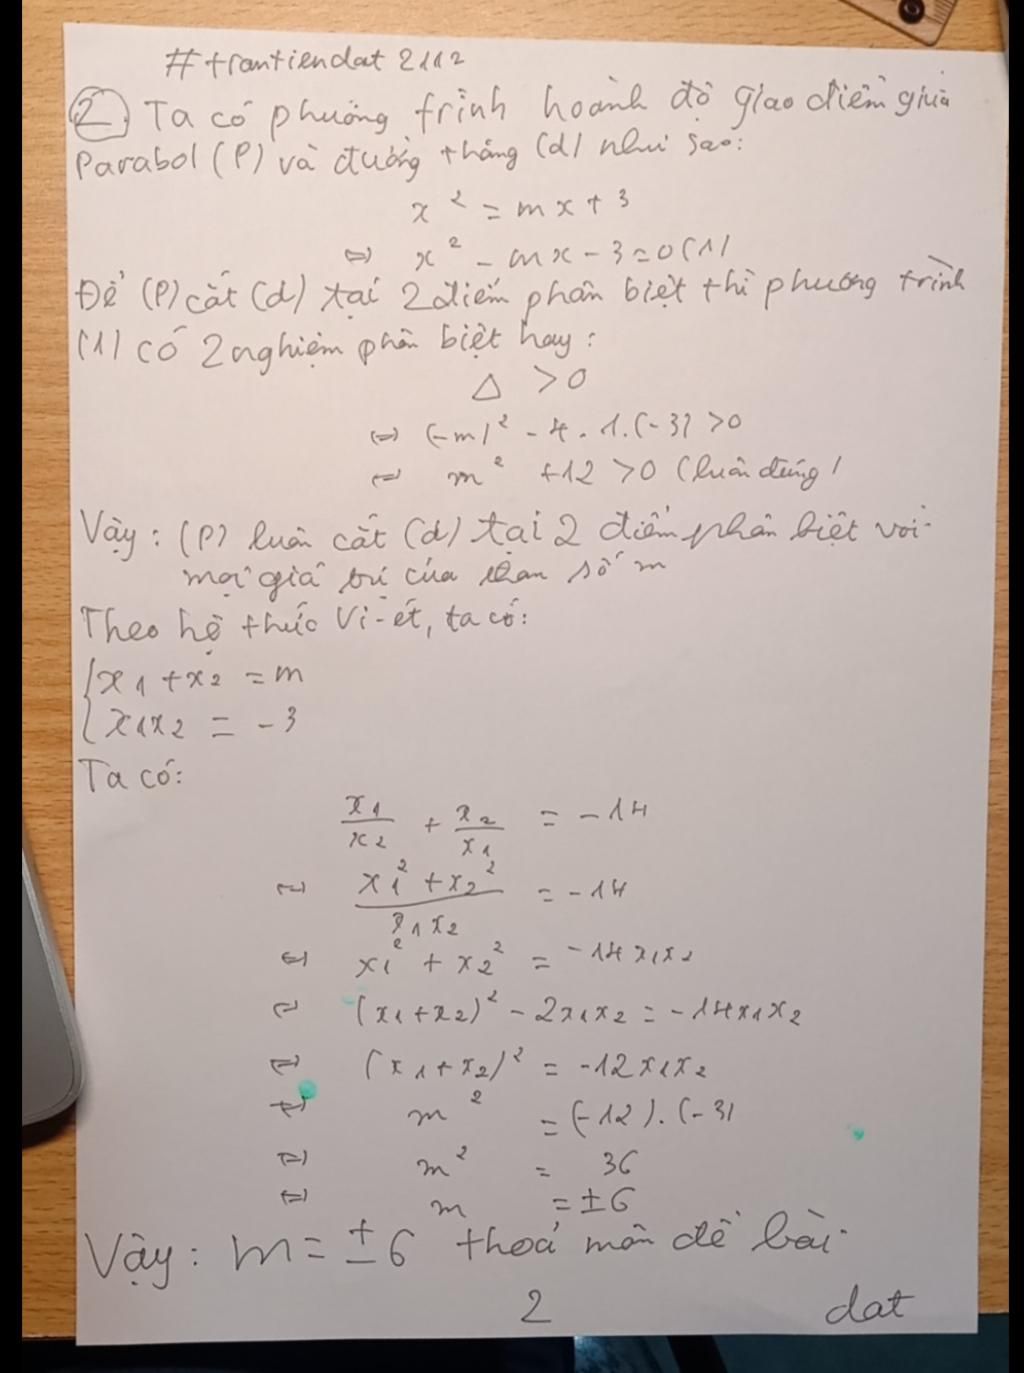 #trantiendat2112
② Ta có phương trình hoành độ giao điểm giữa
Parabol (P) và đường thẳng (d) như sao:
x² = mx + 3
⇔ x² - mx - 3 = 0 (1)
Để (P) cắt (d) tại 2 điểm phân biệt thì phương trình
(1) có 2 nghiệm phân biệt hay:
Δ > 0
⇔ (-m)² - 4.1.(-3) > 0
⇔ m² + 12 > 0 (luôn đúng)
Vậy: (P) luôn cắt (d) tại 2 điểm phân biệt với
mọi giá trí của tham số m
Theo hệ thức Vi-ét, ta có:
{x1 + x2 = m
{x1x2 = -3
Ta có:
x1/x2 + x2/x1 = -14
⇔ (x1² + x2²)/(x1x2) = -14
⇔ x1² + x2² = -14x1x2
⇔ (x1 + x2)² - 2x1x2 = -14x1x2
⇔ (x1 + x2)² = -12x1x2
⇔ m² = (-12).(-3)
⇔ m² = 36
⇔ m = ±6
Vậy: m = ±6 thoả mãn đề bài.
2 dat